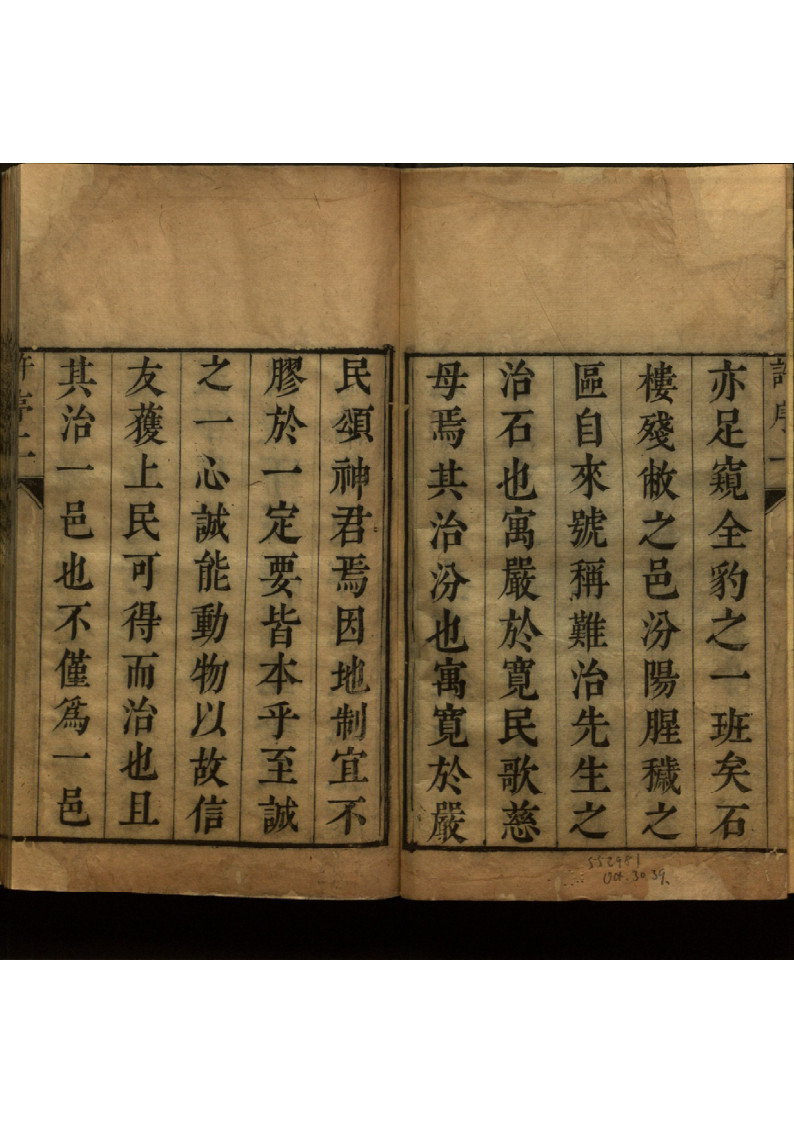 許序一
亦足窺全豹之一班矣石
樓殘敝之邑汾陽腥穢之
區自來號稱難治先生之
治石也寓嚴於寬民歌慈
母焉其治汾也寓寬於嚴
民頌神君焉因地制宜不
膠於一定要皆本乎至誠
之一心誠能動物以故信
友獲上民可得而治也且
其治一邑也不僅爲一邑
552981
Oct. 30. 39.